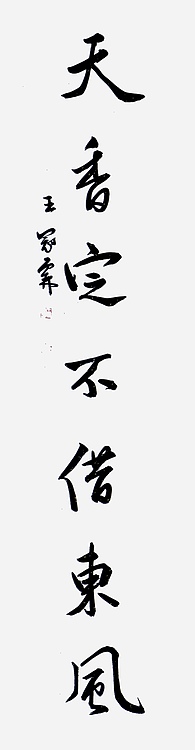 天香定不借東風
王冢霖